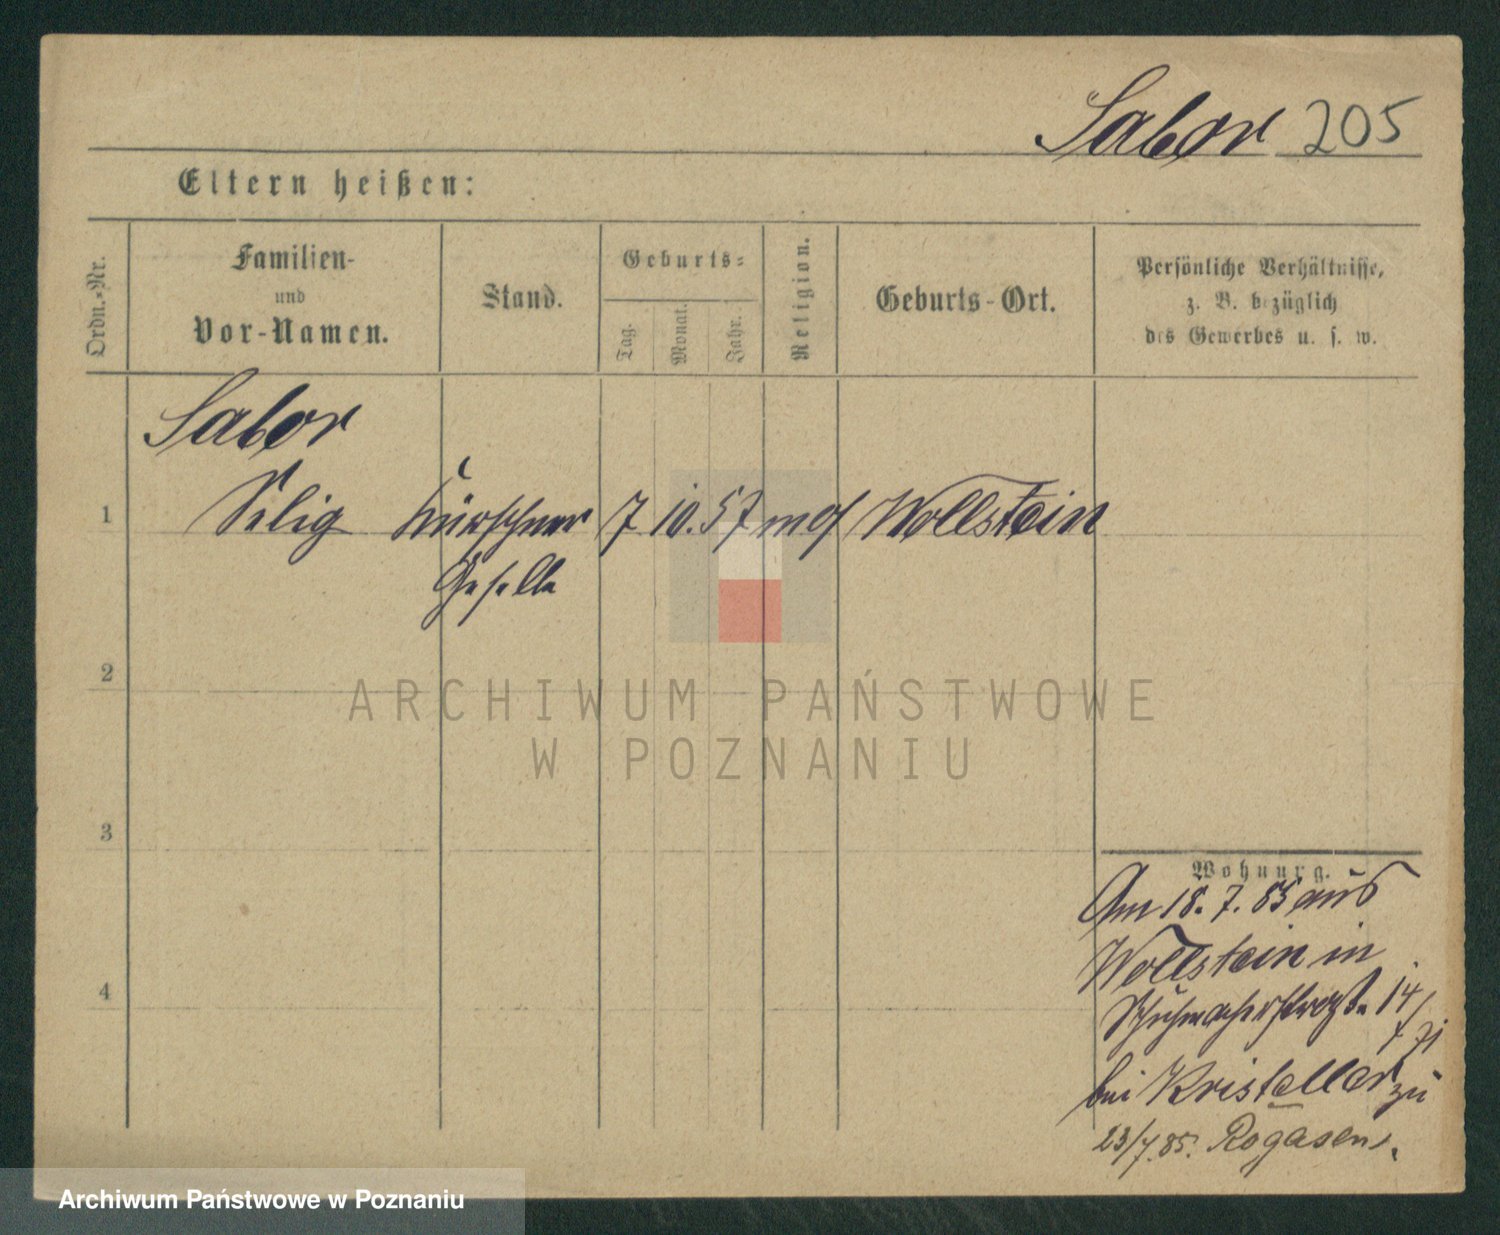 Sabor 205
Eltern heißen:
Ordn.-Nr.
Familien-
und
Vor-Namen.
Stand.
Geburts-
Tag.
Monat.
Jahr.
Religion.
Geburts-Ort.
Persönliche Verhältnisse,
z. B. bezüglich
des Gewerbes u. s. w.
Sabor
1 Selig Kürschner 7 10. 57 mos Wollstein
Geselle
2
ARCHIWUM PAŃSTWOWE
W POZNANIU
3
Wohnung.
Am 18. 7. 85 aus
Wollstein in
4
Schuhmacherstraße 14/
bei Kristeller zu
23/7.85. Rogasen.
Archiwum Państwowe w Poznaniu